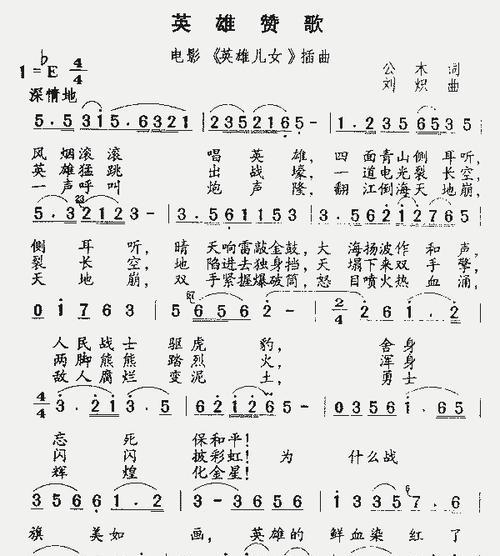 英雄赞歌
电影《英雄儿女》插曲
1=♭E 4/4
公木 词
刘炽 曲
深情地
5.5315.6321 | 2352165- | 1.2356535
风烟滚滚 唱英雄，四面青山侧耳听，
英雄猛跳 出战壕，一道电光裂长空，
一声呼叫 炮声隆，翻江倒海天地崩，
5.32123- | 3.561153 | 3.56212765
侧耳听，晴天响雷敲金鼓，大海扬波作和声，
裂长空，地陷进去独身挡，天塌下来双手擎，
天地崩，双手紧握爆破筒，怒目喷火热血涌，
01763 | 56562- | 2/4 261.2
人民战士驱虎豹，舍身
两脚熊熊踏烈火，浑身
敌人腐烂变泥土，勇士
4/4 3.213.5 | 621265- | 03561.65
忘死 保和平！
闪闪 披彩虹！为什么战
辉煌 化金星！
356561.2 | 3-3656 | 13357.6
旗美如画，英雄的鲜血染红了